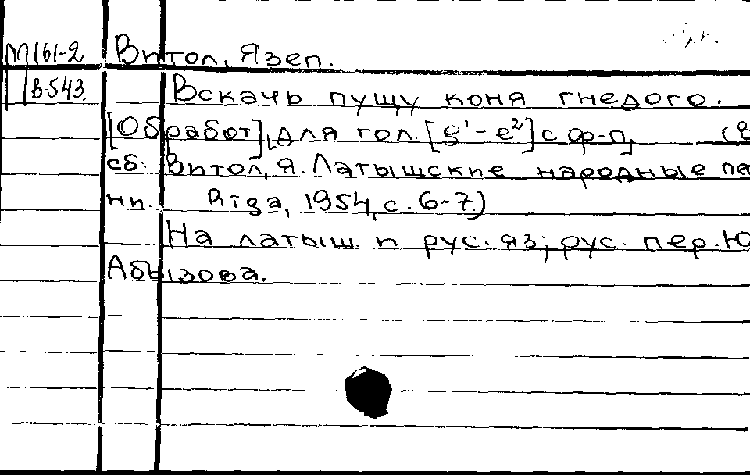 М161-2 Витол, Язеп.
В543 Вскачь пущу коня гнедого.
[Обработ], для гол. [g¹-e²] с ф-п, (в
сб: Витол, Я. Латышские народные пе
ни. Rīga, 1954, с. 6-7)
На латыш. и рус. яз; рус. пер. Ю
Абызова.